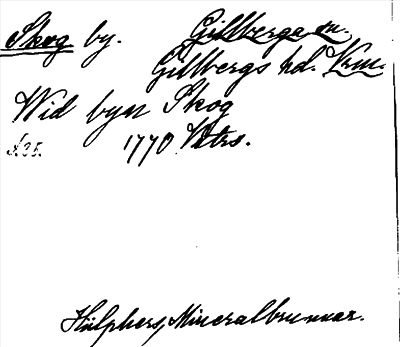 Skog by. Gillberga sn.
Gillbergs hd. Vrml.
Wid byn Skog
1770 Vttrs.
Hülphers, Mineralbrunnar.